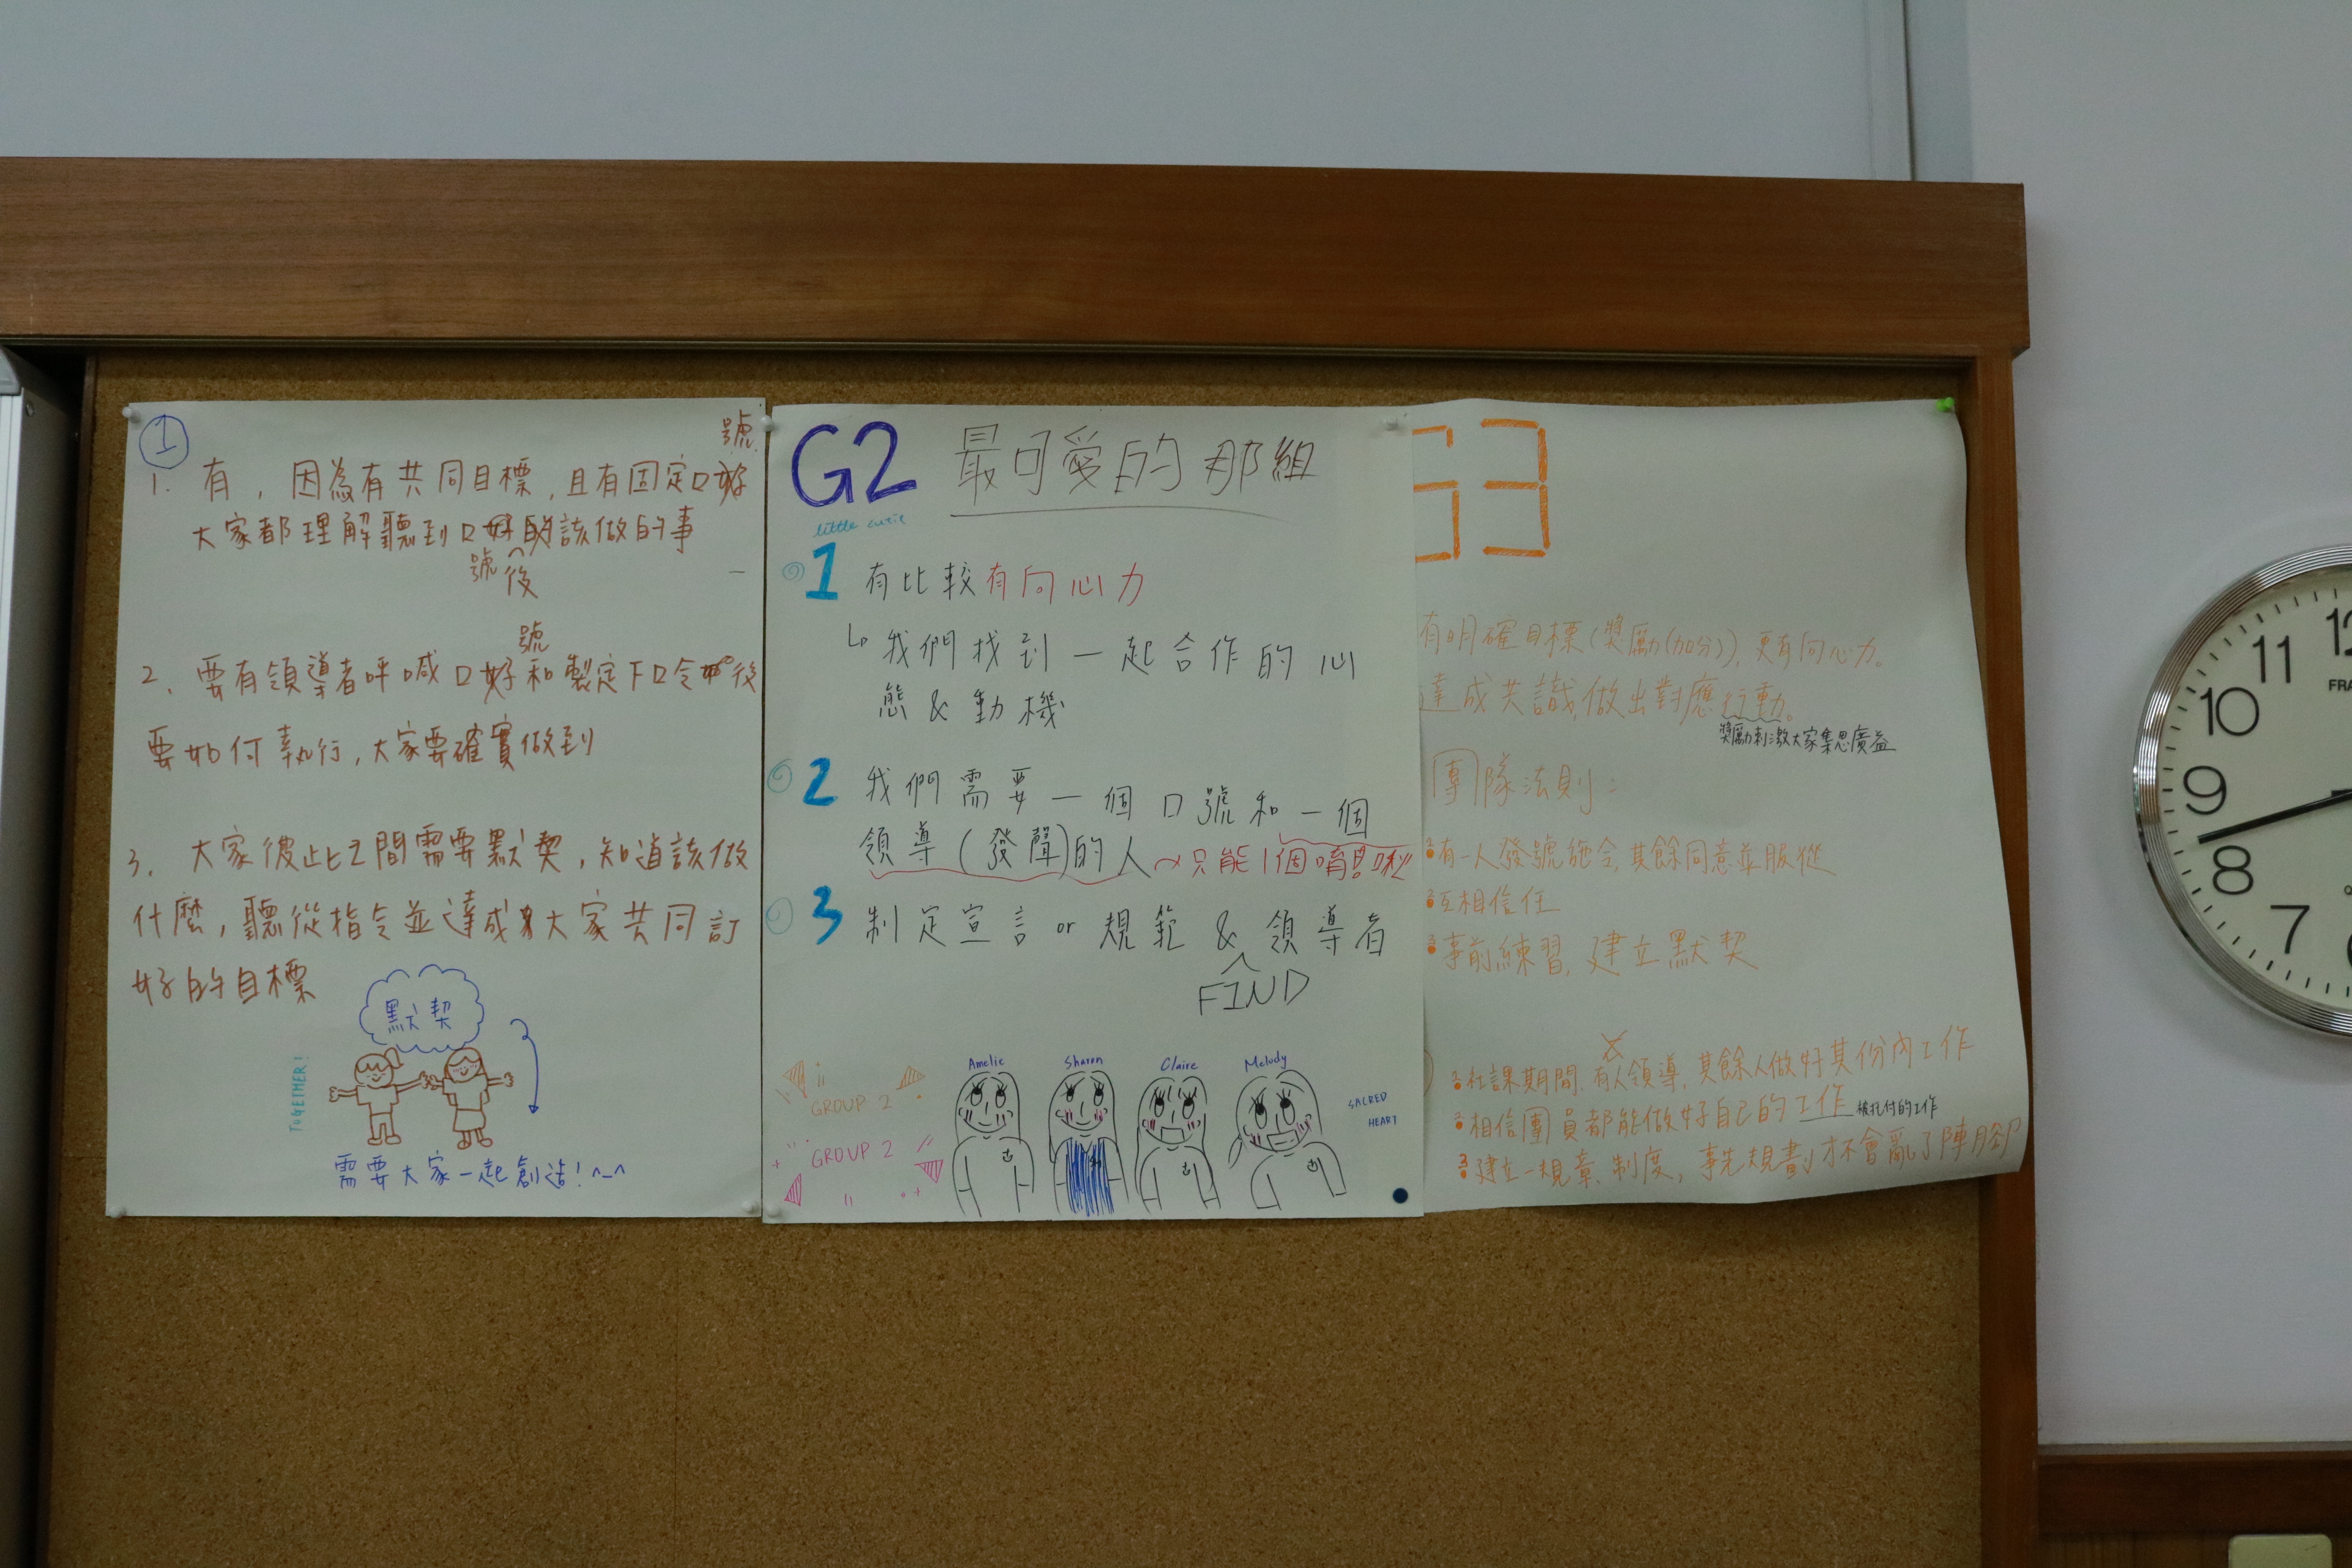 ①
號
1. 有，因為有共同目標，且有固定口
大家都理解聽到口該做的事
號 後
號
2. 要有領導者呼喊口和製定下口令後
要如何執行，大家要確實做到
3. 大家彼此之間需要默契，知道該做
什麼，聽從指令並達成大家共同訂
好的目標
默契
TOGETHER!
需要大家一起創造！^_^
G2 最可愛的那組
little cutie
1 有比較有向心力
↳ 我們找到一起合作的心
態 & 動機
2 我們需要一個口號和一個
領導(發聲)的人～只能1個
3 制定宣言 or 規範 & 領導者
FIND
GROUP 2
GROUP 2
Amelie Sharon Claire Melody
SACRED
HEART
G3
有明確目標(獎勵(加分))，更有向心力。
達成共識，做出對應行動。
獎勵刺激大家集思廣益
團隊法則：
有一人發號施令，其餘同意並服從
互相信任
事前練習，建立默契
1 社課期間，有人領導，其餘人做好其份內工作
2 相信團員都能做好自己的工作 被托付的工作
3 建立一規章、制度，事先規劃才不會亂了陣腳
12
11
10
9
8
7
FRA